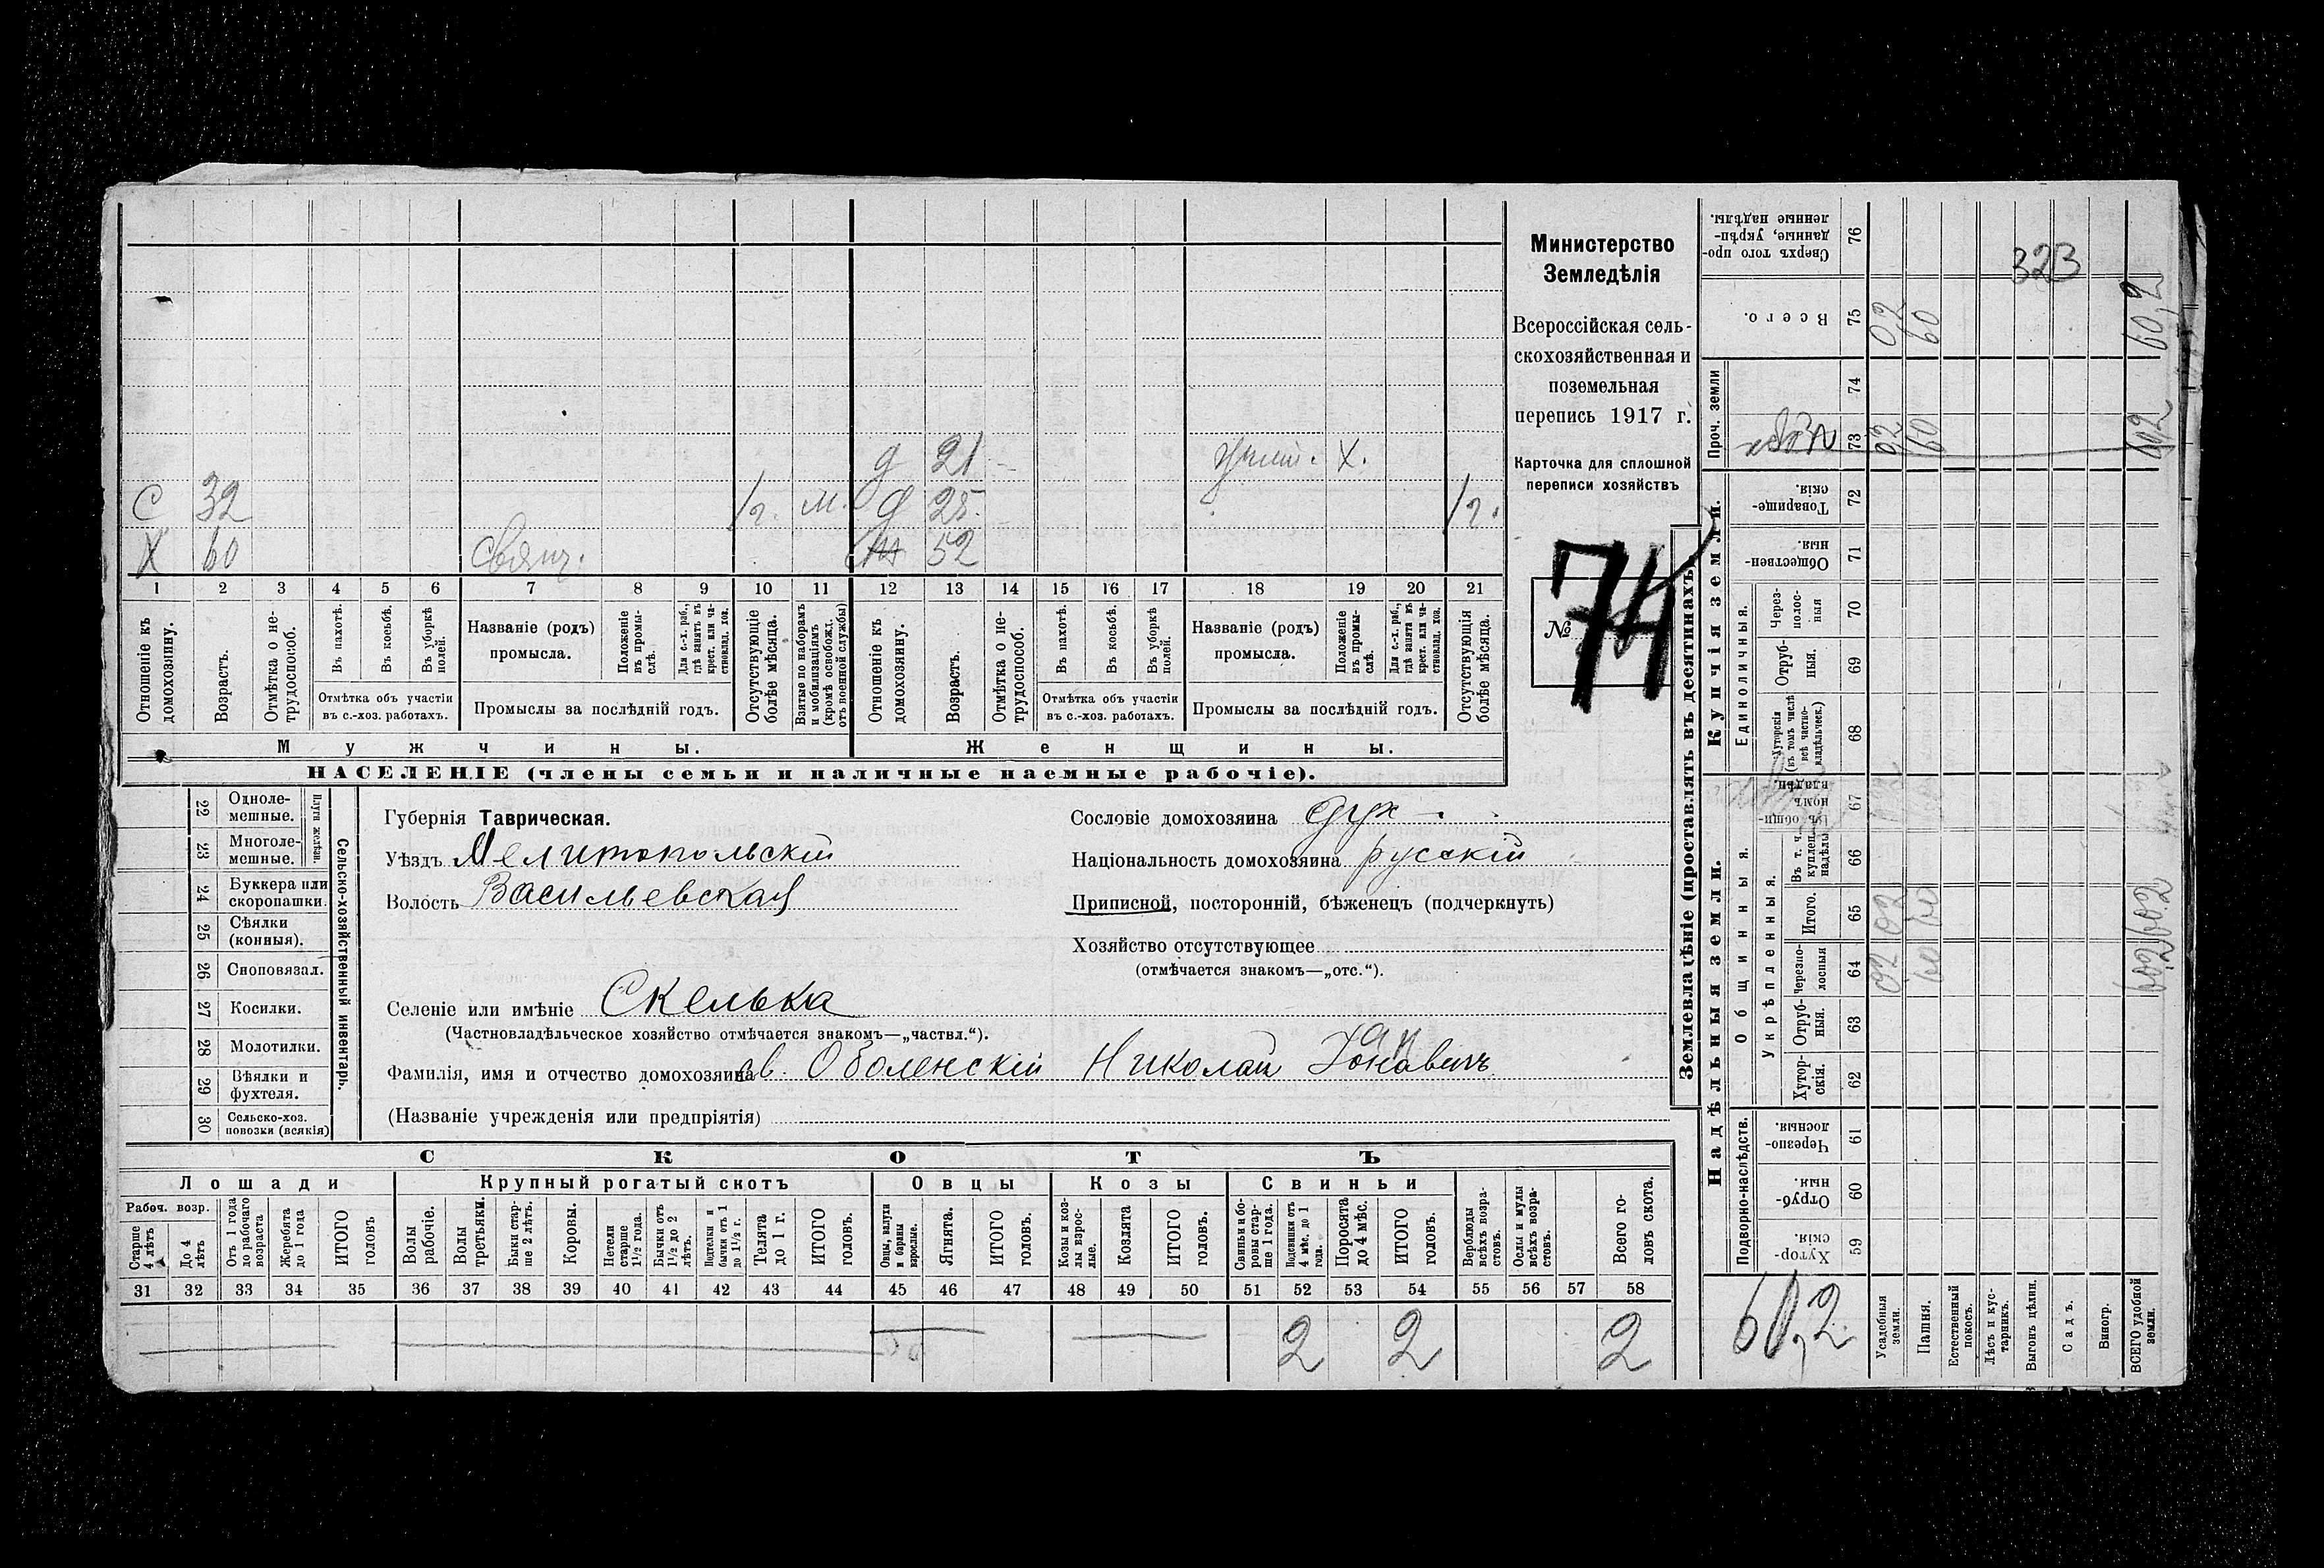 Министерство
Земледѣлія
Всероссійская сель-
скохозяйственная и
поземельная
перепись 1917 г.
Карточка для сплошной
переписи хозяйствъ
№ 74
д 21 учит. х.
С 32 1г. м. д 25 1г.
Х 60 Свящ. ж 52
1 2 3 4 5 6 7 8 9 10 11 12 13 14 15 16 17 18 19 20 21
Отношеніе къ домохозяину.
Возрастъ.
Отмѣтка о не-трудоспособ.
Въ пахотѣ.
Въ косьбѣ.
Въ уборкѣ полей.
Отмѣтка объ участіи въ с.-хоз. работахъ.
Названіе (родъ) промысла.
Положеніе въ промы-слѣ.
Для с.-х. раб., гдѣ занятъ въ крест. или ча-ствовлад. хоз.
Промыслы за послѣдній годъ.
Отсутствующіе болѣе мѣсяца.
Взятые по наборамъ и мобилизаціямъ (кромѣ освобожд. отъ военной службы)
Отношеніе къ домохозяину.
Возрастъ.
Отмѣтка о не-трудоспособ.
Въ пахотѣ.
Въ косьбѣ.
Въ уборкѣ полей.
Отмѣтка объ участіи въ с.-хоз. работахъ.
Названіе (родъ) промысла.
Положеніе въ промы-слѣ.
Для с.-х. раб., гдѣ занята въ крест. или ча-ствовлад. хоз.
Промыслы за послѣдній годъ.
Отсутствующія болѣе мѣсяца.
Мужчины. Женщины.
НАСЕЛЕНІЕ (члены семьи и наличные наемные рабочіе).
Сельско-хозяйственный инвентарь.
Плуги желѣзн.
22 Одноле-мешные.
23 Многоле-мешные.
24 Буккера или скоропашки.
25 Сѣялки (конныя).
26 Сноповязал.
27 Косилки.
28 Молотилки.
29 Вѣялки и фухтеля.
30 Сельско-хоз. повозки (всякія)
Губернія Таврическая.
Уѣздъ Мелитопольскій
Волость Васильевская
Селеніе или имѣніе Скелька
(Частновладѣльческое хозяйство отмѣчается знакомъ—„частвл.“).
Фамилія, имя и отчество домохозяина св. Оболенскій Николай
(Названіе учрежденія или предпріятія)
Сословіе домохозяина дух.
Національность домохозяина русскій
Приписной, посторонній, бѣженецъ (подчеркнуть)
Хозяйство отсутствующее
(отмѣчается знакомъ—„отс.“).
СКОТЪ
Лошади Крупный рогатый скотъ Овцы Козы Свиньи
Рабоч. возр.
Старше 4 лѣтъ
До 4 лѣтъ
Отъ 1 года до рабочаго возраста
Жеребята до 1 года
ИТОГО головъ
Волы рабочіе.
Волы третьяки.
Быки стар-ше 2 лѣтъ.
Коровы.
Нетели старше 1½ года.
Бычки отъ 1½ до 2 лѣтъ.
Подтелки и бычки отъ 1 до 1½ г.
Телята до 1 г.
ИТОГО головъ.
Овцы, валухи и бараны взрослые.
Ягнята.
ИТОГО головъ.
Козы и коз-лы взрос-лые.
Козлята
ИТОГО головъ.
Свиньи и бо-ровы стар-ше 1 года.
Подсвинки отъ 4 мѣс. до 1 года.
Поросята до 4 мѣс.
ИТОГО головъ.
Верблюды всѣхъ возра-стовъ.
Ослы и мулы всѣхъ возра-стовъ.
Всего го-ловъ скота.
31 32 33 34 35 36 37 38 39 40 41 42 43 44 45 46 47 48 49 50 51 52 53 54 55 56 57 58
2 2 2
Землевладѣніе (проставлять въ десятинахъ)
Надѣльныя земли. Купчія земли. Проч. земли
Подворно-наслѣдств.
Общинныя.
Укрѣпленныя.
Единоличныя.
59 Хутор-скія.
60 Отруб-ныя.
61 Черезпо-лосныя
62 Хутор-скія.
63 Отруб-ныя.
64 Черезпо-лосныя
65 Итого.
66 Въ т. ч. куплен. надѣлы
67 Въ общин-номъ владѣн.
68 Хуторскія (въ томъ числѣ всѣ частно-владѣльческ.)
69 Отруб-ныя.
70 Через-полос-ныя
71 Обществен-ныя.
72 Товарище-скія.
73
74
75 Всего.
76 Сверхъ того про-данные, укрѣп-ленные надѣлы.
Усадебныя земли.
Пашня.
Естественный покосъ.
Лѣсъ и кус-тарникъ.
Выгонъ цѣлин.
Садъ.
Виногр.
ВСЕГО удобной земли.
60,2
02 60 60,2
02 60 60,2
323